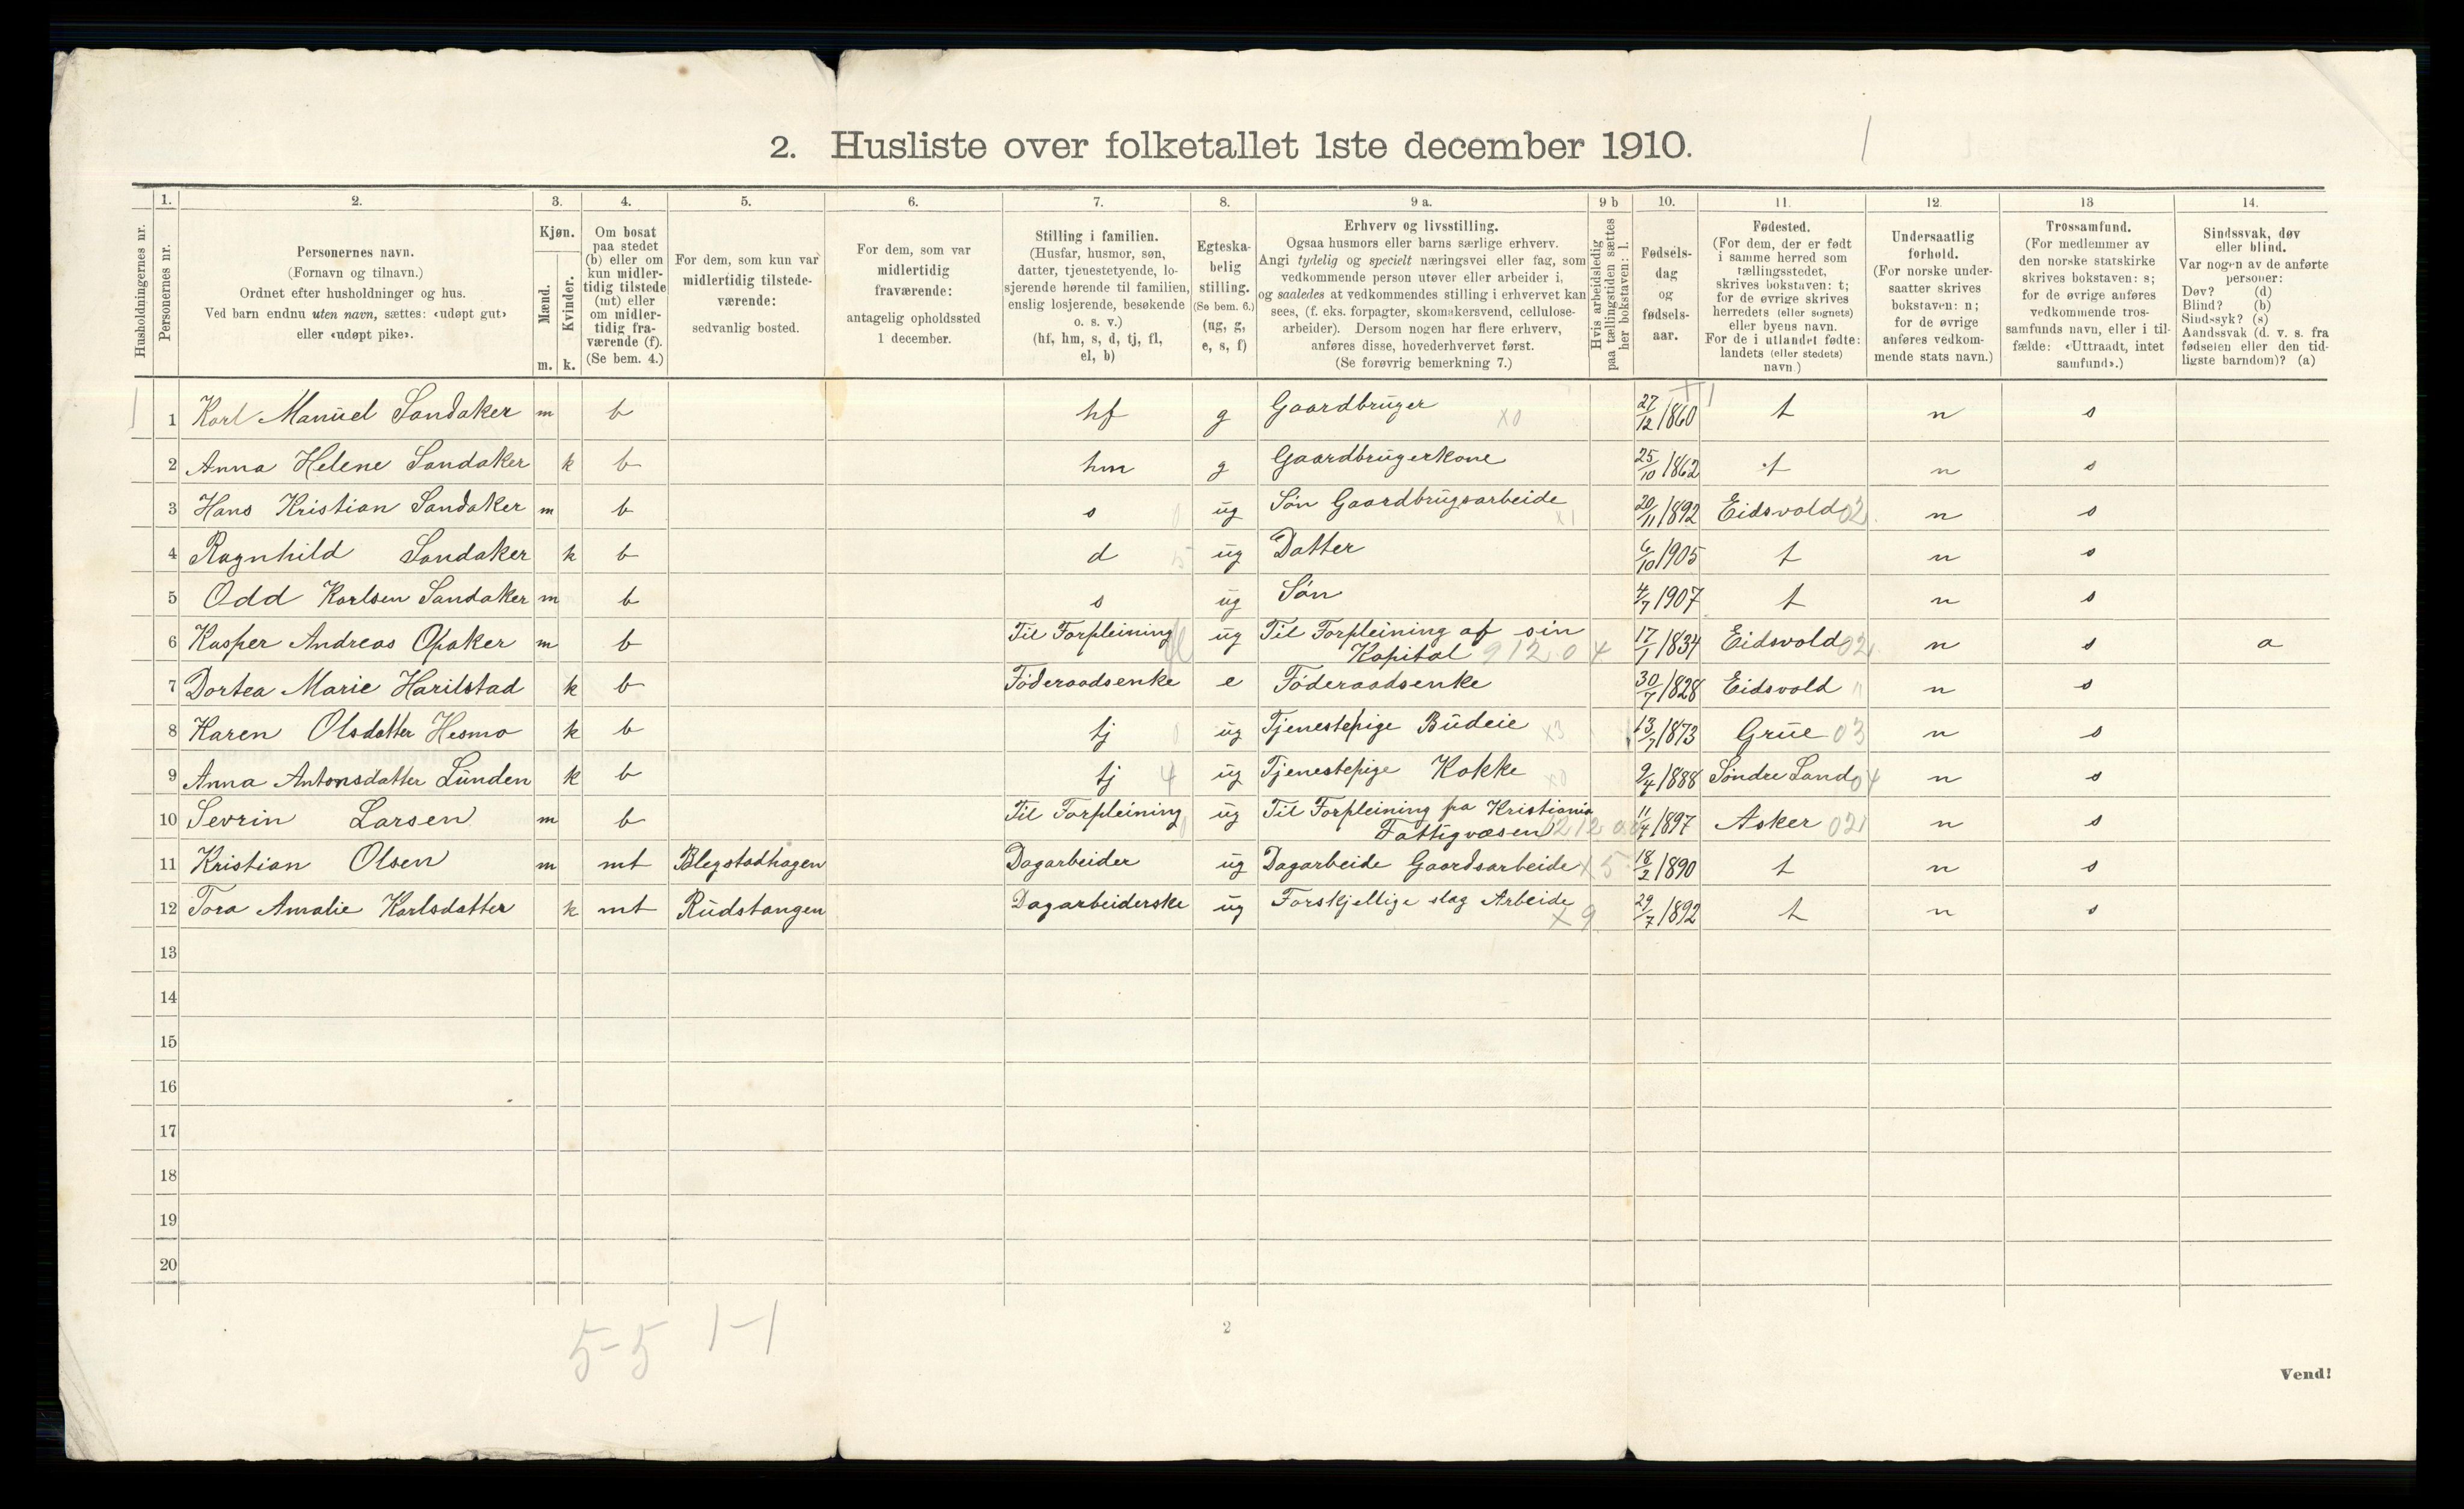 2. Husliste over folketallet 1ste december 1910.
1. 2. 3. 4. 5. 6. 7. 8. 9 a. 9 b 10. 11. 12. 13 14.
Husholdningernes nr.
Personernes nr.
Personernes navn.
(Fornavn og tilnavn.)
Ordnet efter husholdninger og hus.
Ved barn endnu uten navn, sættes: «udøpt gut»
eller «udøpt pike».
Kjøn.
Mænd.
Kvinder.
m. k.
Om bosat
paa stedet
(b) eller om
kun midler-
tidig tilstede
(mt) eller
om midler-
tidig fra-
værende (f).
(Se bem. 4.)
For dem, som kun var
midlertidig tilstede-
værende:
sedvanlig bosted.
For dem, som var
midlertidig
fraværende:
antagelig opholdssted
1 december.
Stilling i familien.
(Husfar, husmor, søn,
datter, tjenestetyende, lo-
sjerende hørende til familien,
enslig losjerende, besøkende
o. s. v.)
(hf, hm, s, d, tj, fl,
el, b)
Egteska-
belig
stilling.
(Se bem. 6.)
(ug, g,
e, s, f)
Erhverv og livsstilling.
Ogsaa husmors eller barns særlige erhverv.
Angi tydelig og specielt næringsvei eller fag, som
vedkommende person utøver eller arbeider i,
og saaledes at vedkommendes stilling i erhvervet kan
sees, (f. eks. forpagter, skomakersvend, cellulose-
arbeider). Dersom nogen har flere erhverv,
anføres disse, hovederhvervet først.
(Se forøvrig bemerkning 7.)
Hvis arbeidsledig
paa tællingstiden sættes
her bokstaven: l.
Fødsels-
dag
og
fødsels-
aar.
Fødested.
(For dem, der er født
i samme herred som
tællingsstedet,
skrives bokstaven: t;
for de øvrige skrives
herredets (eller sognets)
eller byens navn.
For de i utlandet fødte:
landets (eller stedets)
navn.)
Undersaatlig
forhold.
(For norske under-
saatter skrives
bokstaven: n;
for de øvrige
anføres vedkom-
mende stats navn.)
Trossamfund.
(For medlemmer av
den norske statskirke
skrives bokstaven: s;
for de øvrige anføres
vedkommende tros-
samfunds navn, eller i til-
fælde: «Uttraadt, intet
samfund».)
Sindssvak, døv
eller blind.
Var nogen av de anførte
personer:
Døv? (d)
Blind? (b)
Sindssyk? (s)
Aandssvak (d. v. s. fra
fødselen eller den tid-
ligste barndom)? (a)
1 1 Karl Manuel Sandaker m b hf g Gaardbruger x0 27/12 1860 t n s
2 Anna Helene Sandaker k b hm g Gaardbrugerkone 25/10 1862 t n s
3 Hans Kristian Sandaker m b s 0 ug Søn Gaardbrugsarbeide x1 20/11 1892 Eidsvold 02 n s
4 Ragnhild Sandaker k b d 5 ug Datter 6/10 1905 t n s
5 Odd Karlsen Sandaker m b s ug Søn 4/7 1907 t n s
6 Kasper Andreas Opaker m b Til Forpleining fl ug Til Forpleining af sin
Kapital 912.0 4 17/1 1834 Eidsvold 02 n s a
7 Dortea Marie Harilstad k b Føderaadsenke e Føderaadsenke 30/7 1828 Eidsvold " n s
8 Karen Olsdatter Hesmo k b tj 0 ug Tjenestepige Budeie x3 13/7 1873 Grue 03 n s
9 Anna Antonsdatter Lunden k b tj 4 ug Tjenestepige Kokke x0 9/4 1888 Søndre Land 04 n s
10 Sevrin Larsen m b Til Forpleining 0 ug Til Forpleining fra Kristiania
Fattigvæsen 11/4 1897 Asker 02 n s
11 Kristian Olsen m mt Blegstadhagen Dagarbeider ug Dagarbeide Gaardsarbeide x5 18/2 1890 t n s
12 Tora Amalie Karlsdatter k mt Rudstangen Dagarbeiderske ug Forskjellige slag Arbeide x9 29/7 1892 t n s
13
14
15
16
17
18
19
20
5-5 1-1
2
Vend!